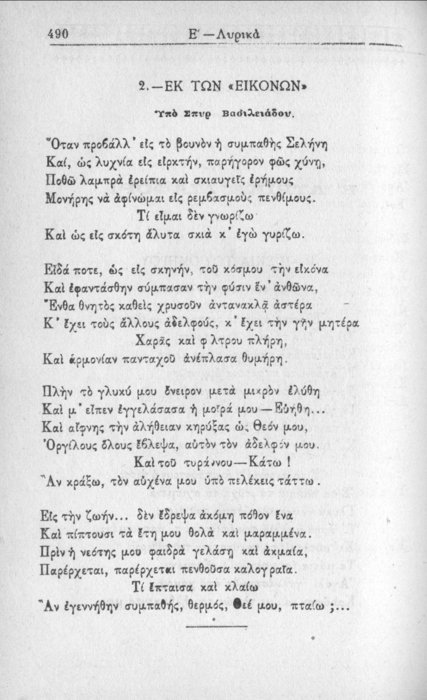 490
Ε΄ —Λυρικὰ
2.—ΕΚ ΤΩΝ «ΕΙΚΟΝΩΝ»
Ὑπὸ Σπυρ Βασιλειάδου.
Ὅταν προβάλλ' εἰς τὸ βουνὸν ἡ συμπαθὴς Σελήνη
Καί, ὡς λυχνία εἰς εἱρκτήν, παρήγορον φῶς χύνῃ,
Ποθῶ λαμπρὰ ἐρείπια καὶ σκιαυγεῖς ἐρήμους
Μονήρης νὰ ἀφίνωμαι εἰς ρεμβασμοὺς πενθίμους.
Τί εἶμαι δὲν γνωρίζω
Καὶ ὡς εἰς σκότη ἄλυτα σκιὰ κ' ἐγὼ γυρίζω.
Εἶδά ποτε, ὡς εἰς σκηνήν, τοῦ κόσμου τὴν εἰκόνα
Καὶ ἐφαντάσθην σύμπασαν τὴν φύσιν ἕν' ἀνθῶνα,
Ἔνθα θνητὸς καθεὶς χρυσοῦν ἀντανακλᾷ ἀστέρα
Κ' ἔχει τοὺς ἄλλους ἀδελφούς, κ' ἔχει τὴν γῆν μητέρα
Χαρᾶς καὶ φ λτρου πλήρη,
Καὶ ἁρμονίαν πανταχοῦ ἀνέπλασα θυμήρη.
Πλὴν τὸ γλυκύ μου ὄνειρον μετὰ μικρὸν ἐλύθη
Καὶ μ' εἶπεν ἐγγελάσασα ἡ μοῖρά μου—Εὐήθη...
Καὶ αἴφνης τὴν ἀλήθειαν κηρύξας ὡ. Θεόν μου,
Ὀργίλους ὅλους ἔβλεψα, αὐτὸν τὸν ἀδελφόν μου.
Καὶ τοῦ τυράννου—Κάτω !
Ἂν κράξω, τὸν αὐχένα μου ὑπὸ πελέκεις τάττω.
Εἰς τὴν ζωήν... δὲν ἔδρεψα ἀκόμη πόθον ἕνα
Καὶ πίπτουσι τὰ ἔτη μου θολὰ καὶ μαραμμένα.
Πρὶν ἡ νεότης μου φαιδρὰ γελάσῃ καὶ ἀκμαία,
Παρέρχεται, παρέρχεται πενθοῦσα καλογραῖα.
Τί ἔπταισα καὶ κλαίω
Ἂν ἐγεννήθην συμπαθής, θερμός, Θεέ μου, πταίω ;...